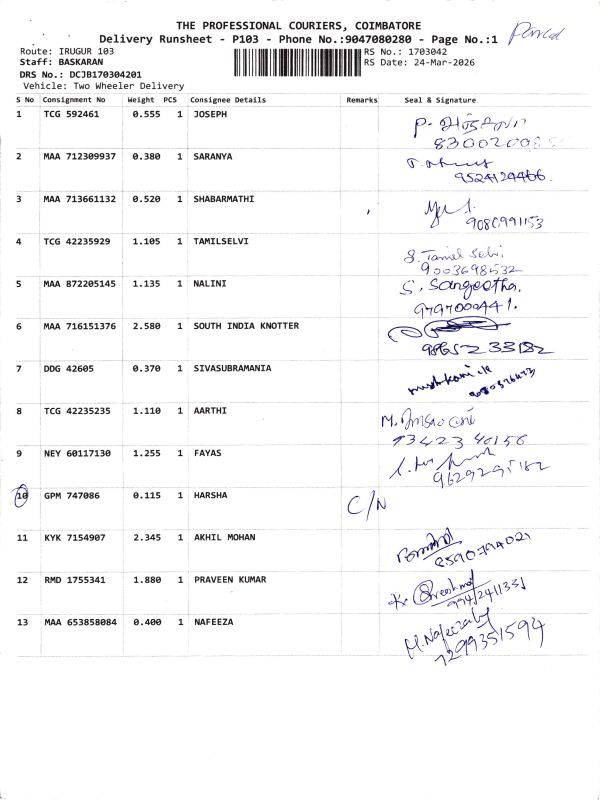 THE PROFESSIONAL COURIERS, COIMBATORE
Delivery Runsheet - P103 - Phone No.:9047080280 - Page No.:1
Route: IRUGUR 103 RS No.: 1703042
Staff: BASKARAN RS Date: 24-Mar-2026
DRS No.: DCJB170304201
Vehicle: Two Wheeler Delivery
S No Consignment No Weight PCS Consignee Details Remarks Seal & Signature
1 TCG 592461 0.555 1 JOSEPH
2 MAA 712309937 0.380 1 SARANYA
9524124466.
3 MAA 713661132 0.520 1 SHABARMATHI
9080991153
4 TCG 42235929 1.105 1 TAMILSELVI
S. Tamil Selvi
9003698532
5 MAA 872205145 1.135 1 NALINI S. Sangeetha.
9797000441.
6 MAA 716151376 2.580 1 SOUTH INDIA KNOTTER
9865233182
7 DDG 42605 0.370 1 SIVASUBRAMANIA
8 TCG 42235235 1.110 1 AARTHI
73423 40156
9 NEY 60117130 1.255 1 FAYAS
9629295182
10 GPM 747086 0.115 1 HARSHA C/N
11 KYK 7154907 2.345 1 AKHIL MOHAN
8590794021
12 RMD 1755341 1.880 1 PRAVEEN KUMAR
9742411331
13 MAA 653858084 0.400 1 NAFEEZA
7299351594